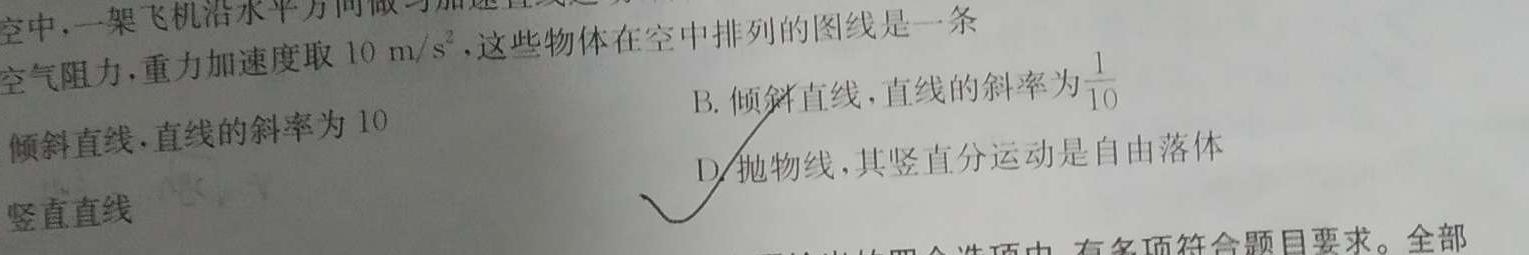 空中,一架飞机沿水平方向做匀加速直线运
空气阻力,重力加速度取 10 m/s²,这些物体在空中排列的图线是一条
倾斜直线,直线的斜率为 10
B. 倾斜直线,直线的斜率为 1/10
竖直直线
D. 抛物线,其竖直分运动是自由落体
四个选项中,有多项符合题目要求。全部